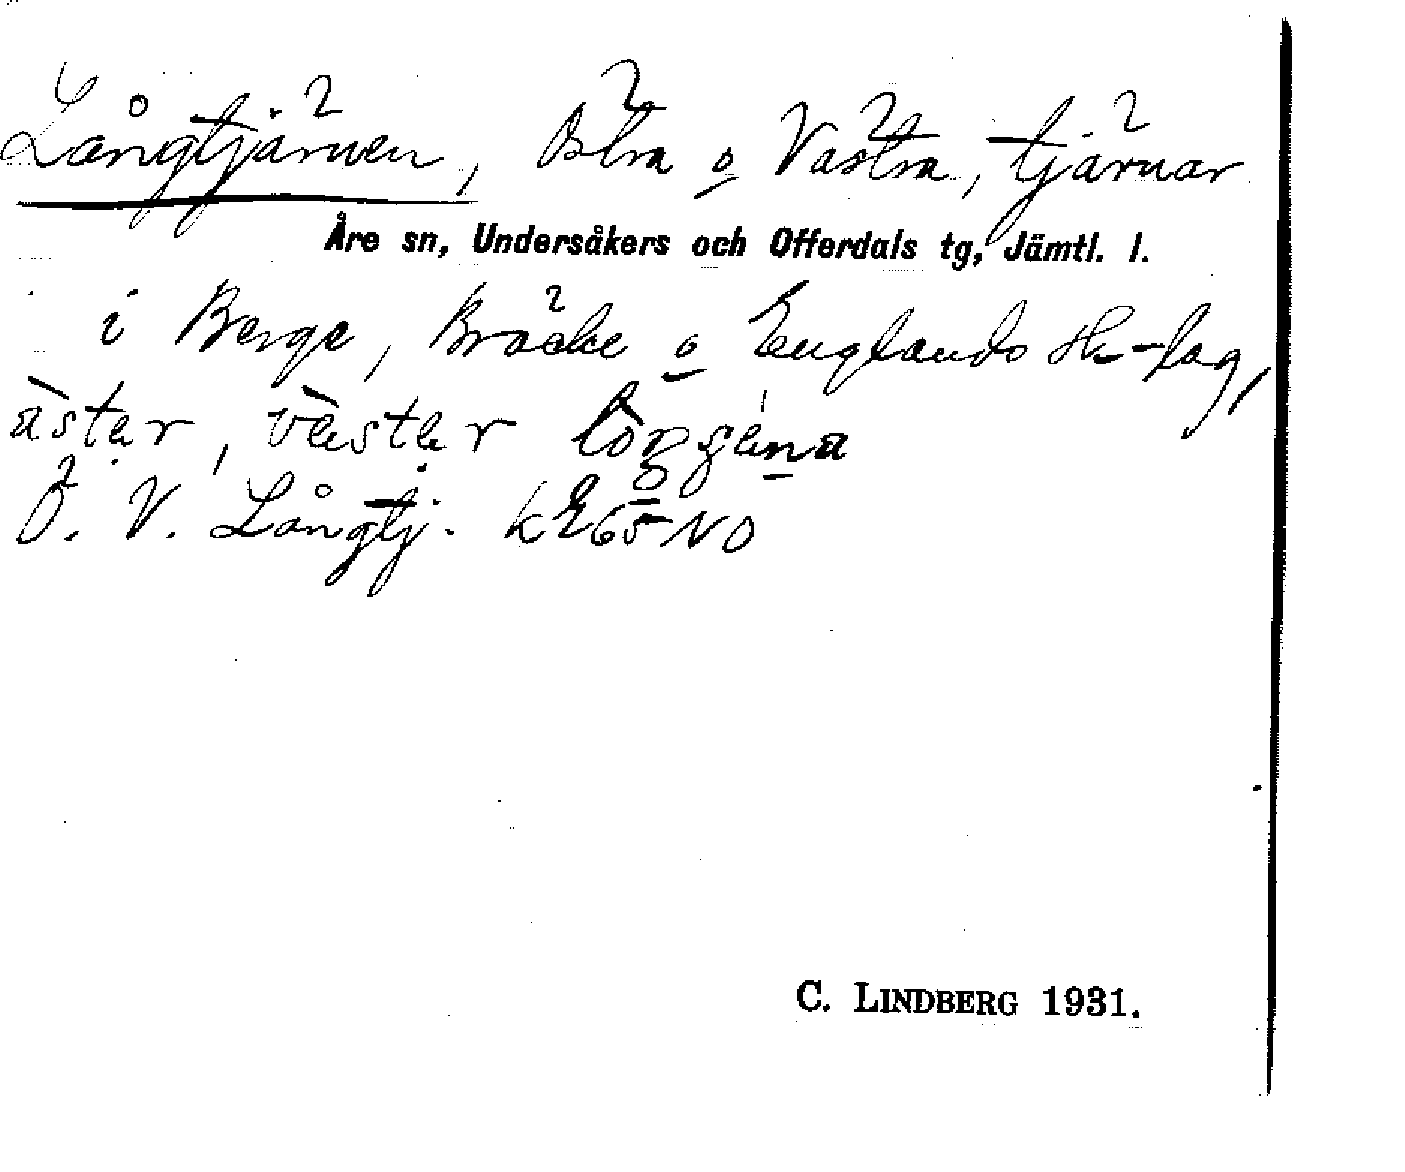 Långtjärnen, Östra o Västra, tjärnar
Åre sn, Undersåkers och Offerdals tg, Jämtl. l.
i Berge, Bräcke o Englands sk-lag,
àster, vèster
Ö. V. Långtj. kE65 NO
C. LINDBERG 1931.